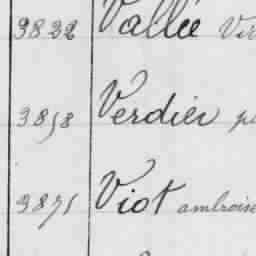 3822 Vallée Vir
3858 Verdier pi
3871 Viot ambroise